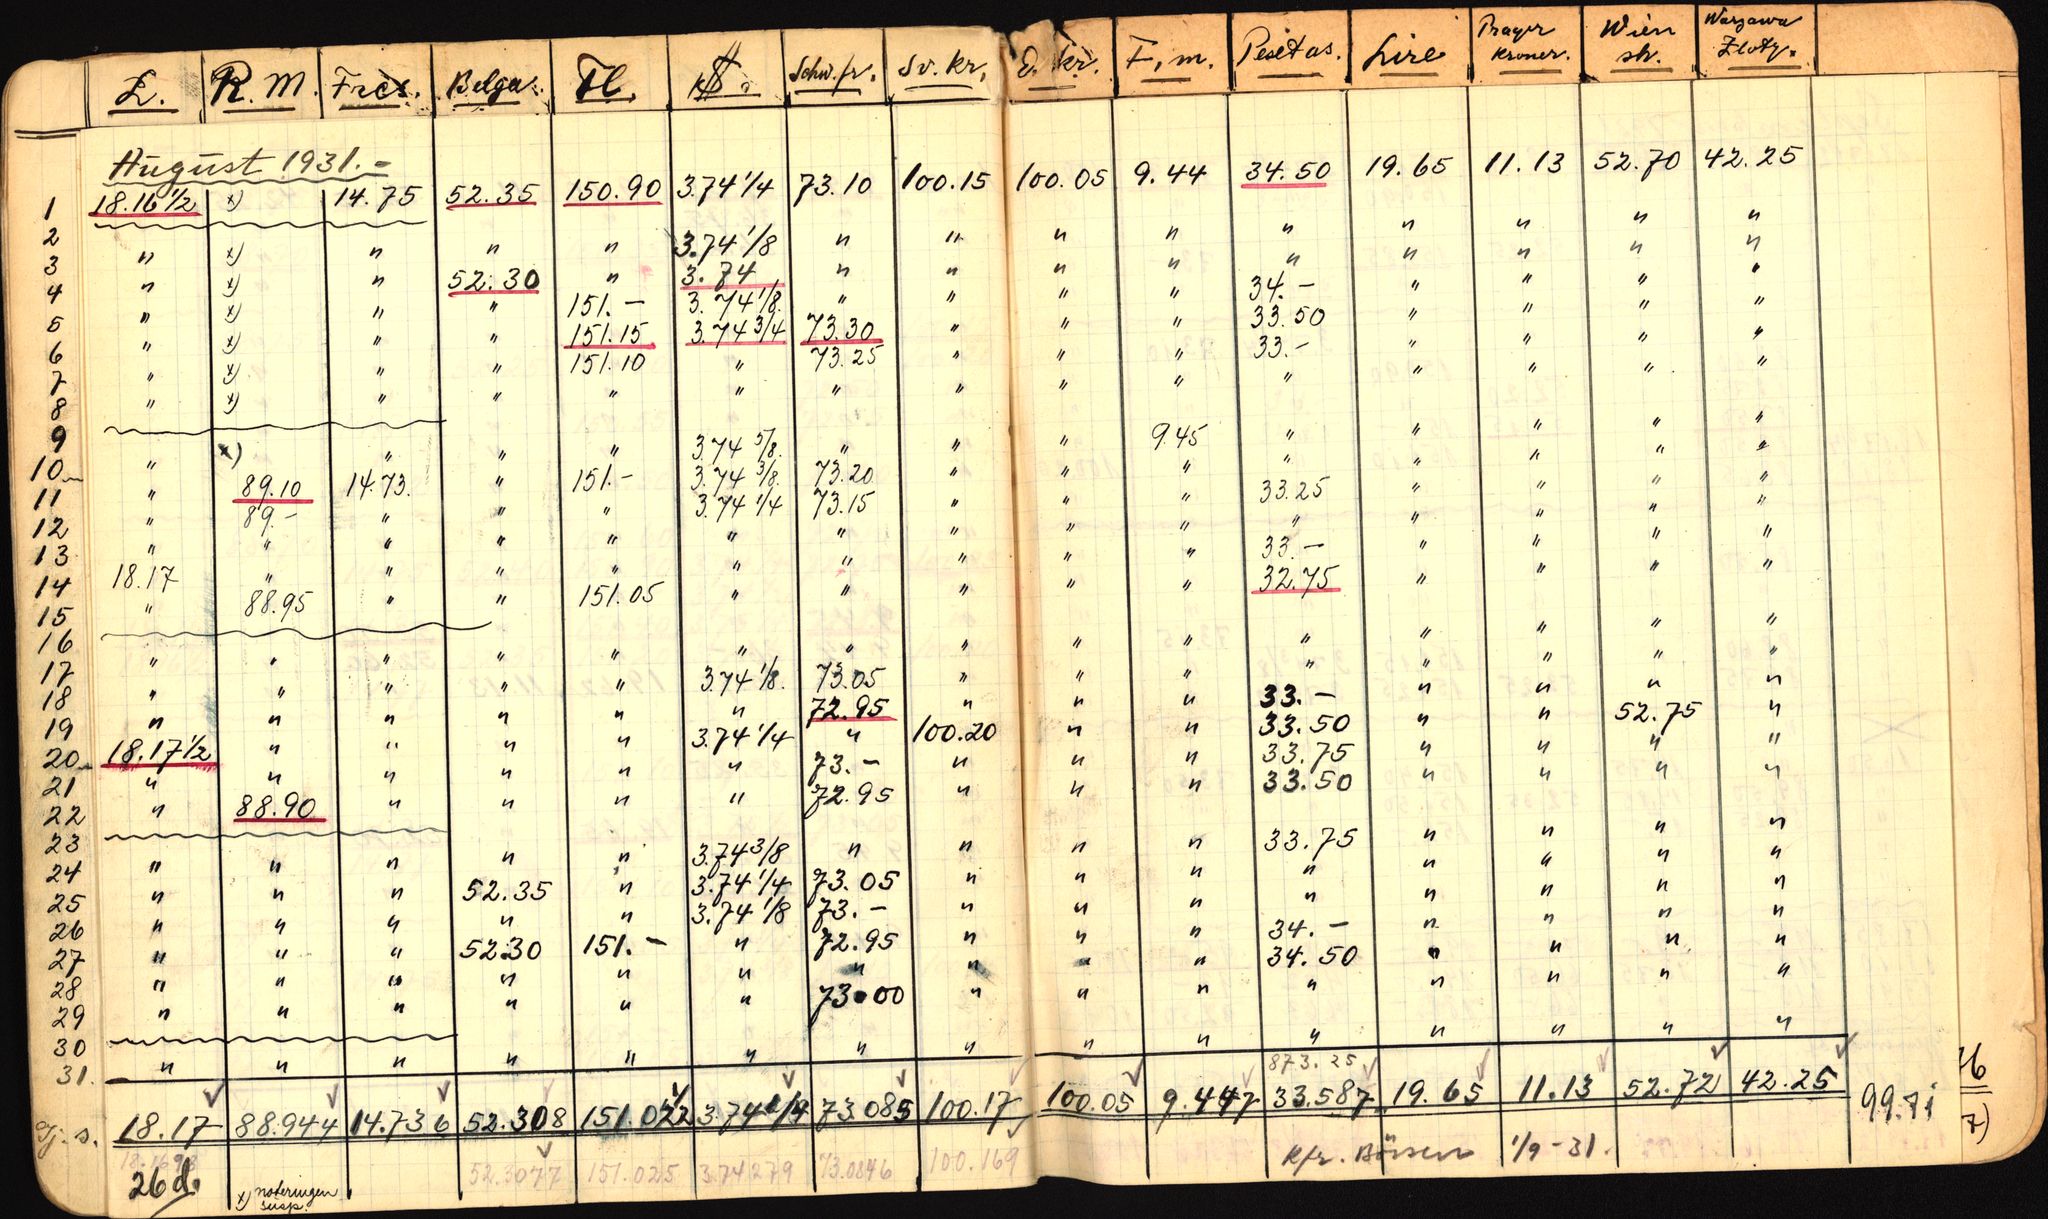 £. R.M. Frcs. Belga. Fl. $. Schw.fr. Sv.kr. D.kr. F.m. Pesetas. Lire Prager Kroner. Wien sh. Warzawa Zloty.
August 1931.-
1 18.16 1/2 x) 14.75 52.35 150.90 3.74 1/4 73.10 100.15 100.05 9.44 34.50 19.65 11.13 52.70 42.25
2
3 " x) " " " 3.74 1/8 " " " " " " " " "
4 " x) " 52.30 " 3.74 " " " " " " " " "
5 " x) " " 151.- 3.74 1/8 " " " " 34.- " " " "
6 " x) " " 151.15 3.74 3/4 73.30 " " " 33.50 " " " "
7 " x) " " 151.10 " 73.25 " " " 33.- " " " "
8 " x) " " " " " " " " " " " " "
9
10 " x) " " " 3.74 5/8 " " " 9.45 " " " " "
11 " 89.10 14.73. " 151.- 3.74 3/8 73.20 " " " " " " " "
12 " 89.- " " " 3.74 1/4 73.15 " " " 33.25 " " " "
13 " " " " " " " " " " " " " " "
14 18.17 " " " " " " " " " 33.- " " " "
15 " 88.95 " " 151.05 " " " " " 32.75 " " " "
16
17 " " " " " " " " " " " " " " "
18 " " " " " 3.74 1/8. 73.05 " " " " " " " "
19 " " " " " " 72.95 " " " 33.- " " " "
20 18.17 1/2 " " " " 3.74 1/4 " 100.20 " " 33.50 " " 52.75 "
21 " " " " " " 73.- " " " 33.75 " " " "
22 " 88.90 " " " " 72.95 " " " 33.50 " " " "
23
24 " " " " " 3.74 3/8 " " " " 33.75 " " " "
25 " " " 52.35 " 3.74 1/4 73.05 " " " " " " " "
26 " " " " " 3.74 1/8 73.- " " " " " " " "
27 " " " 52.30 151.- " 72.95 " " " 34.- " " " "
28 " " " " " " " " " " 34.50 " " " "
29 " " " " " " 73.00 " " " " " " " "
30
31. " " " " " " " " " " " " " " "
873.25
Gj.s. 18.17 88.944 14.736 52.308 151.022 3.74 1/4 73.085 100.17 100.05 9.447 33.587 19.65 11.13 52.72 42.25 99.71
18.1698 52.3077 151.025 3.74279 73.0846 100.169 Kfr. Börsen 1/9-31.
26 d.
x) noteringen susp.